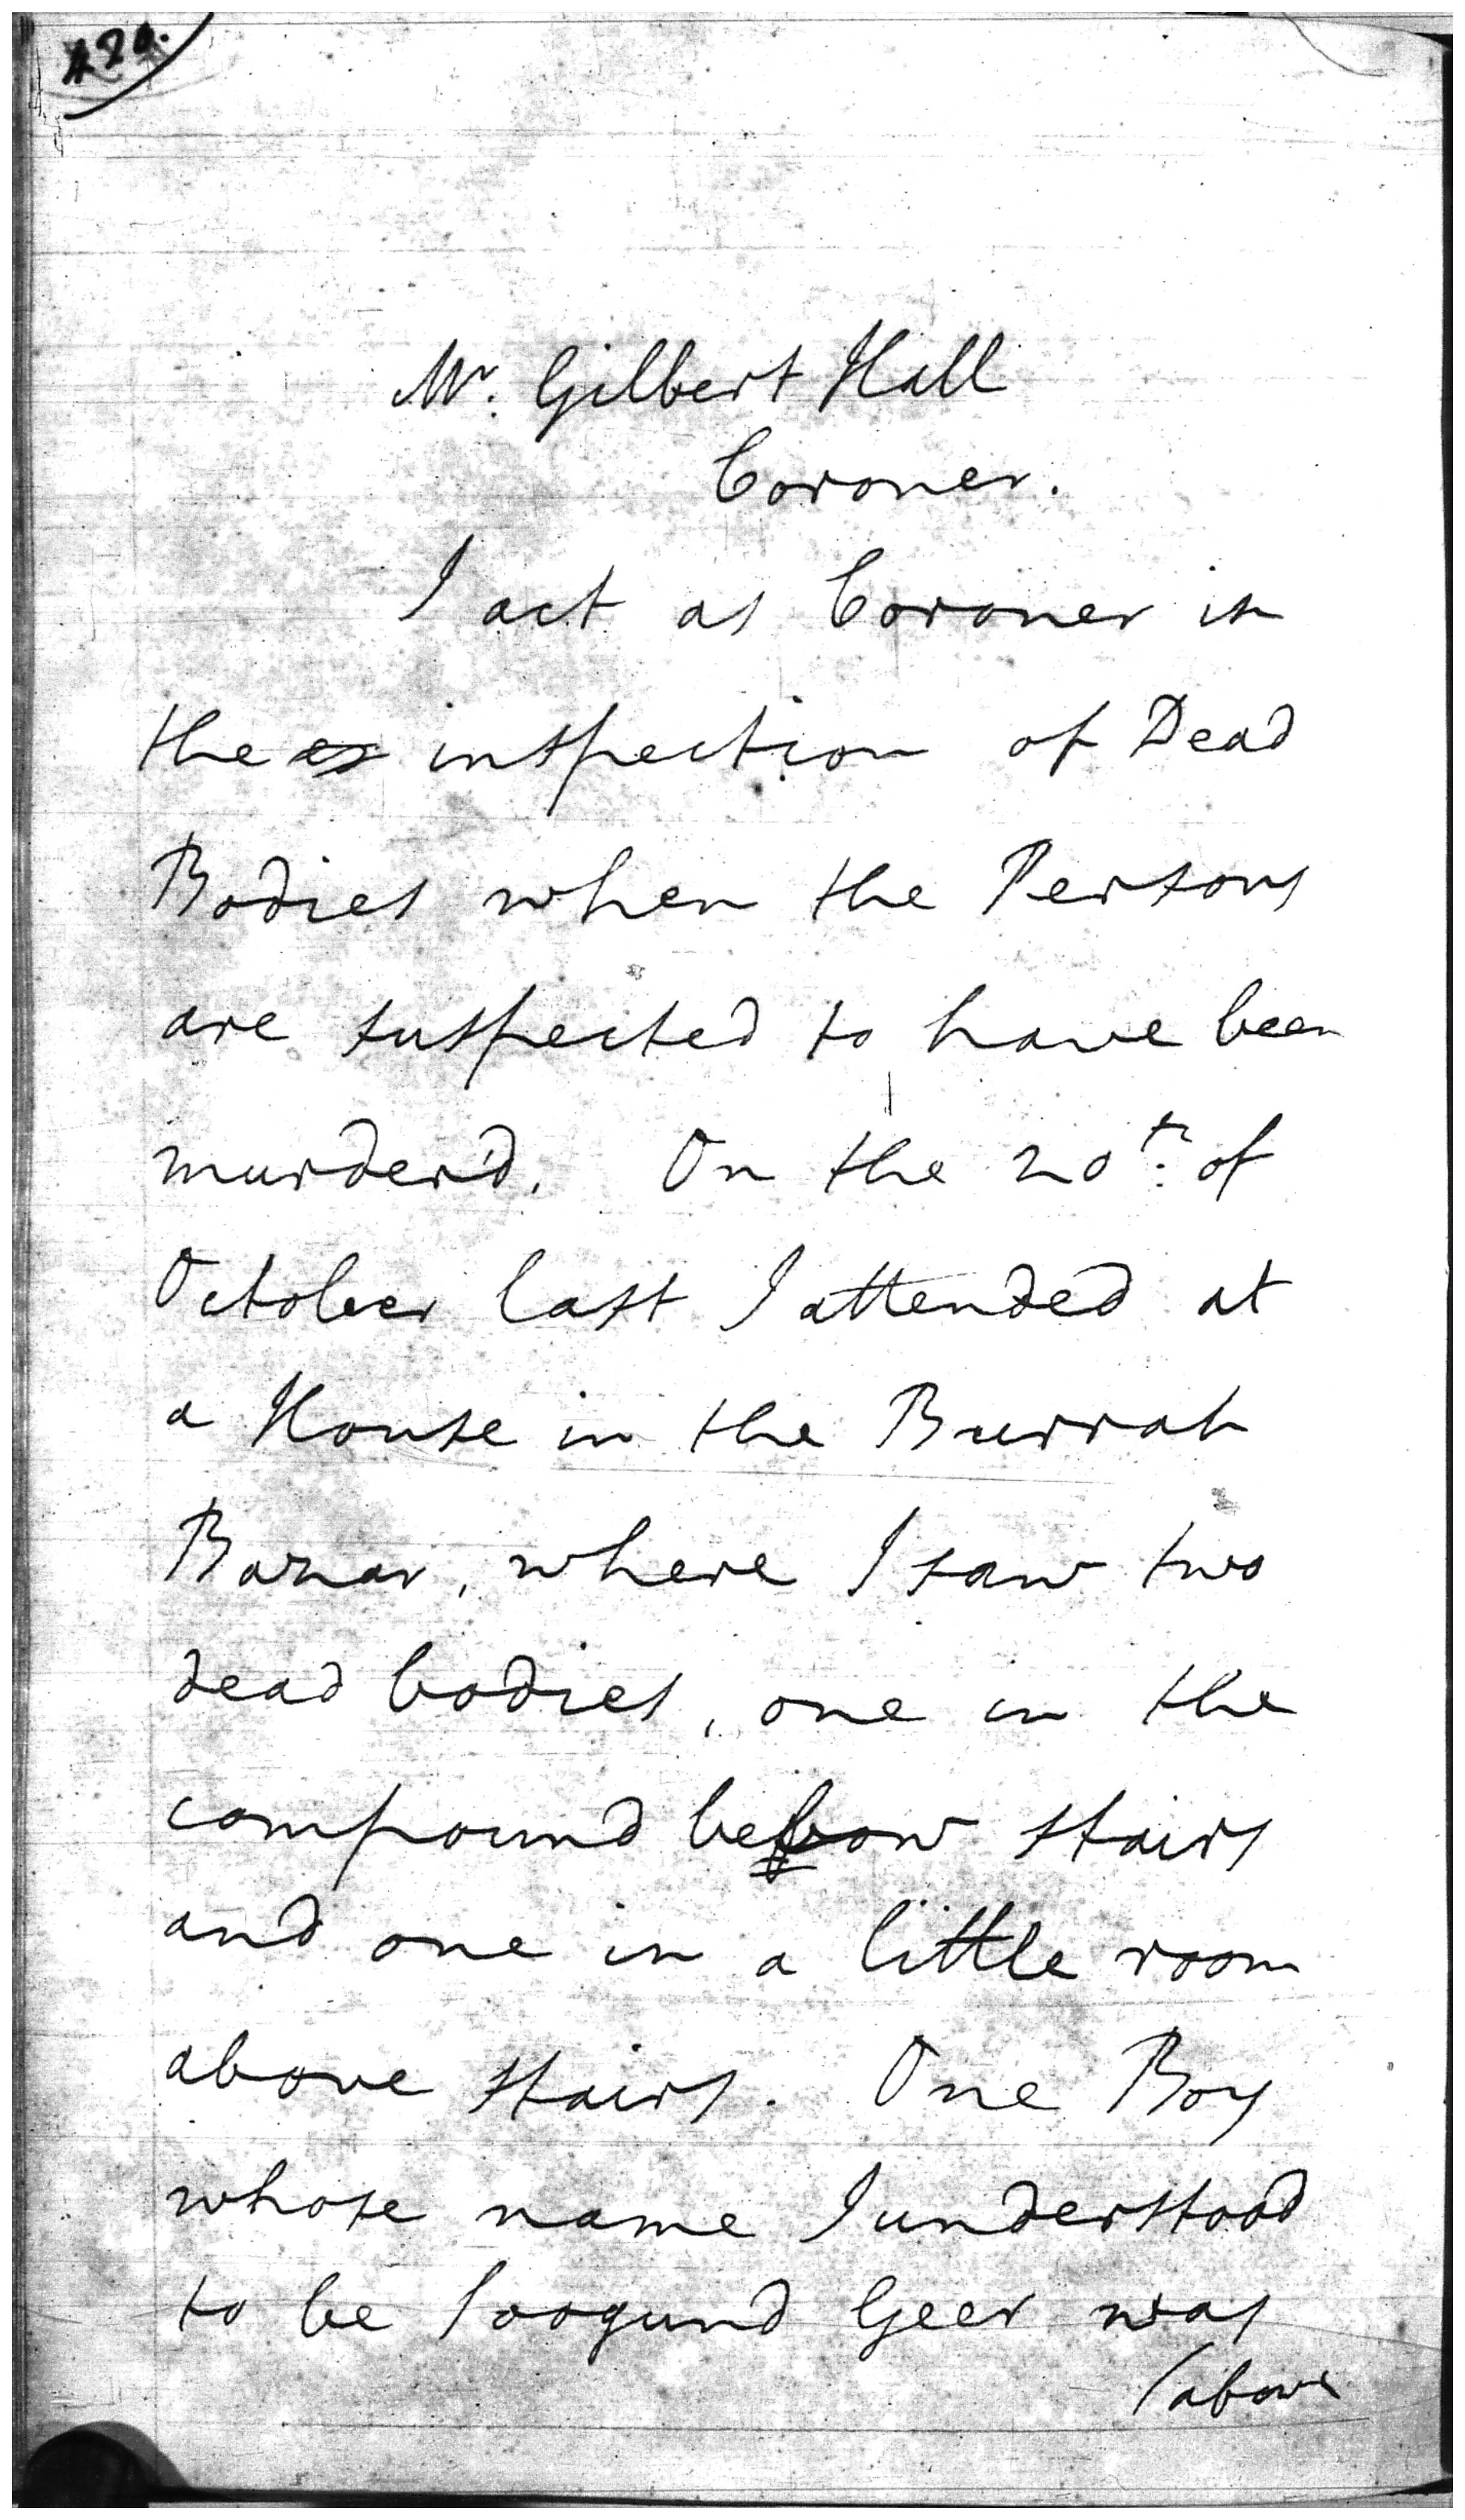 420.
Mr. Gilbert Hall
Coroner.
I act as Coroner in
the ex inspection of Dead
Bodies when the Persons
are suspected to have been
murder'd. On the 20th. of
October last I attended at
a House in the Burrah
Bazar, where I saw two
dead bodies, one in the
compound below stairs
and one in a little room
above stairs. One Boy
whose name I understood
to be Joogund Geer was
(above